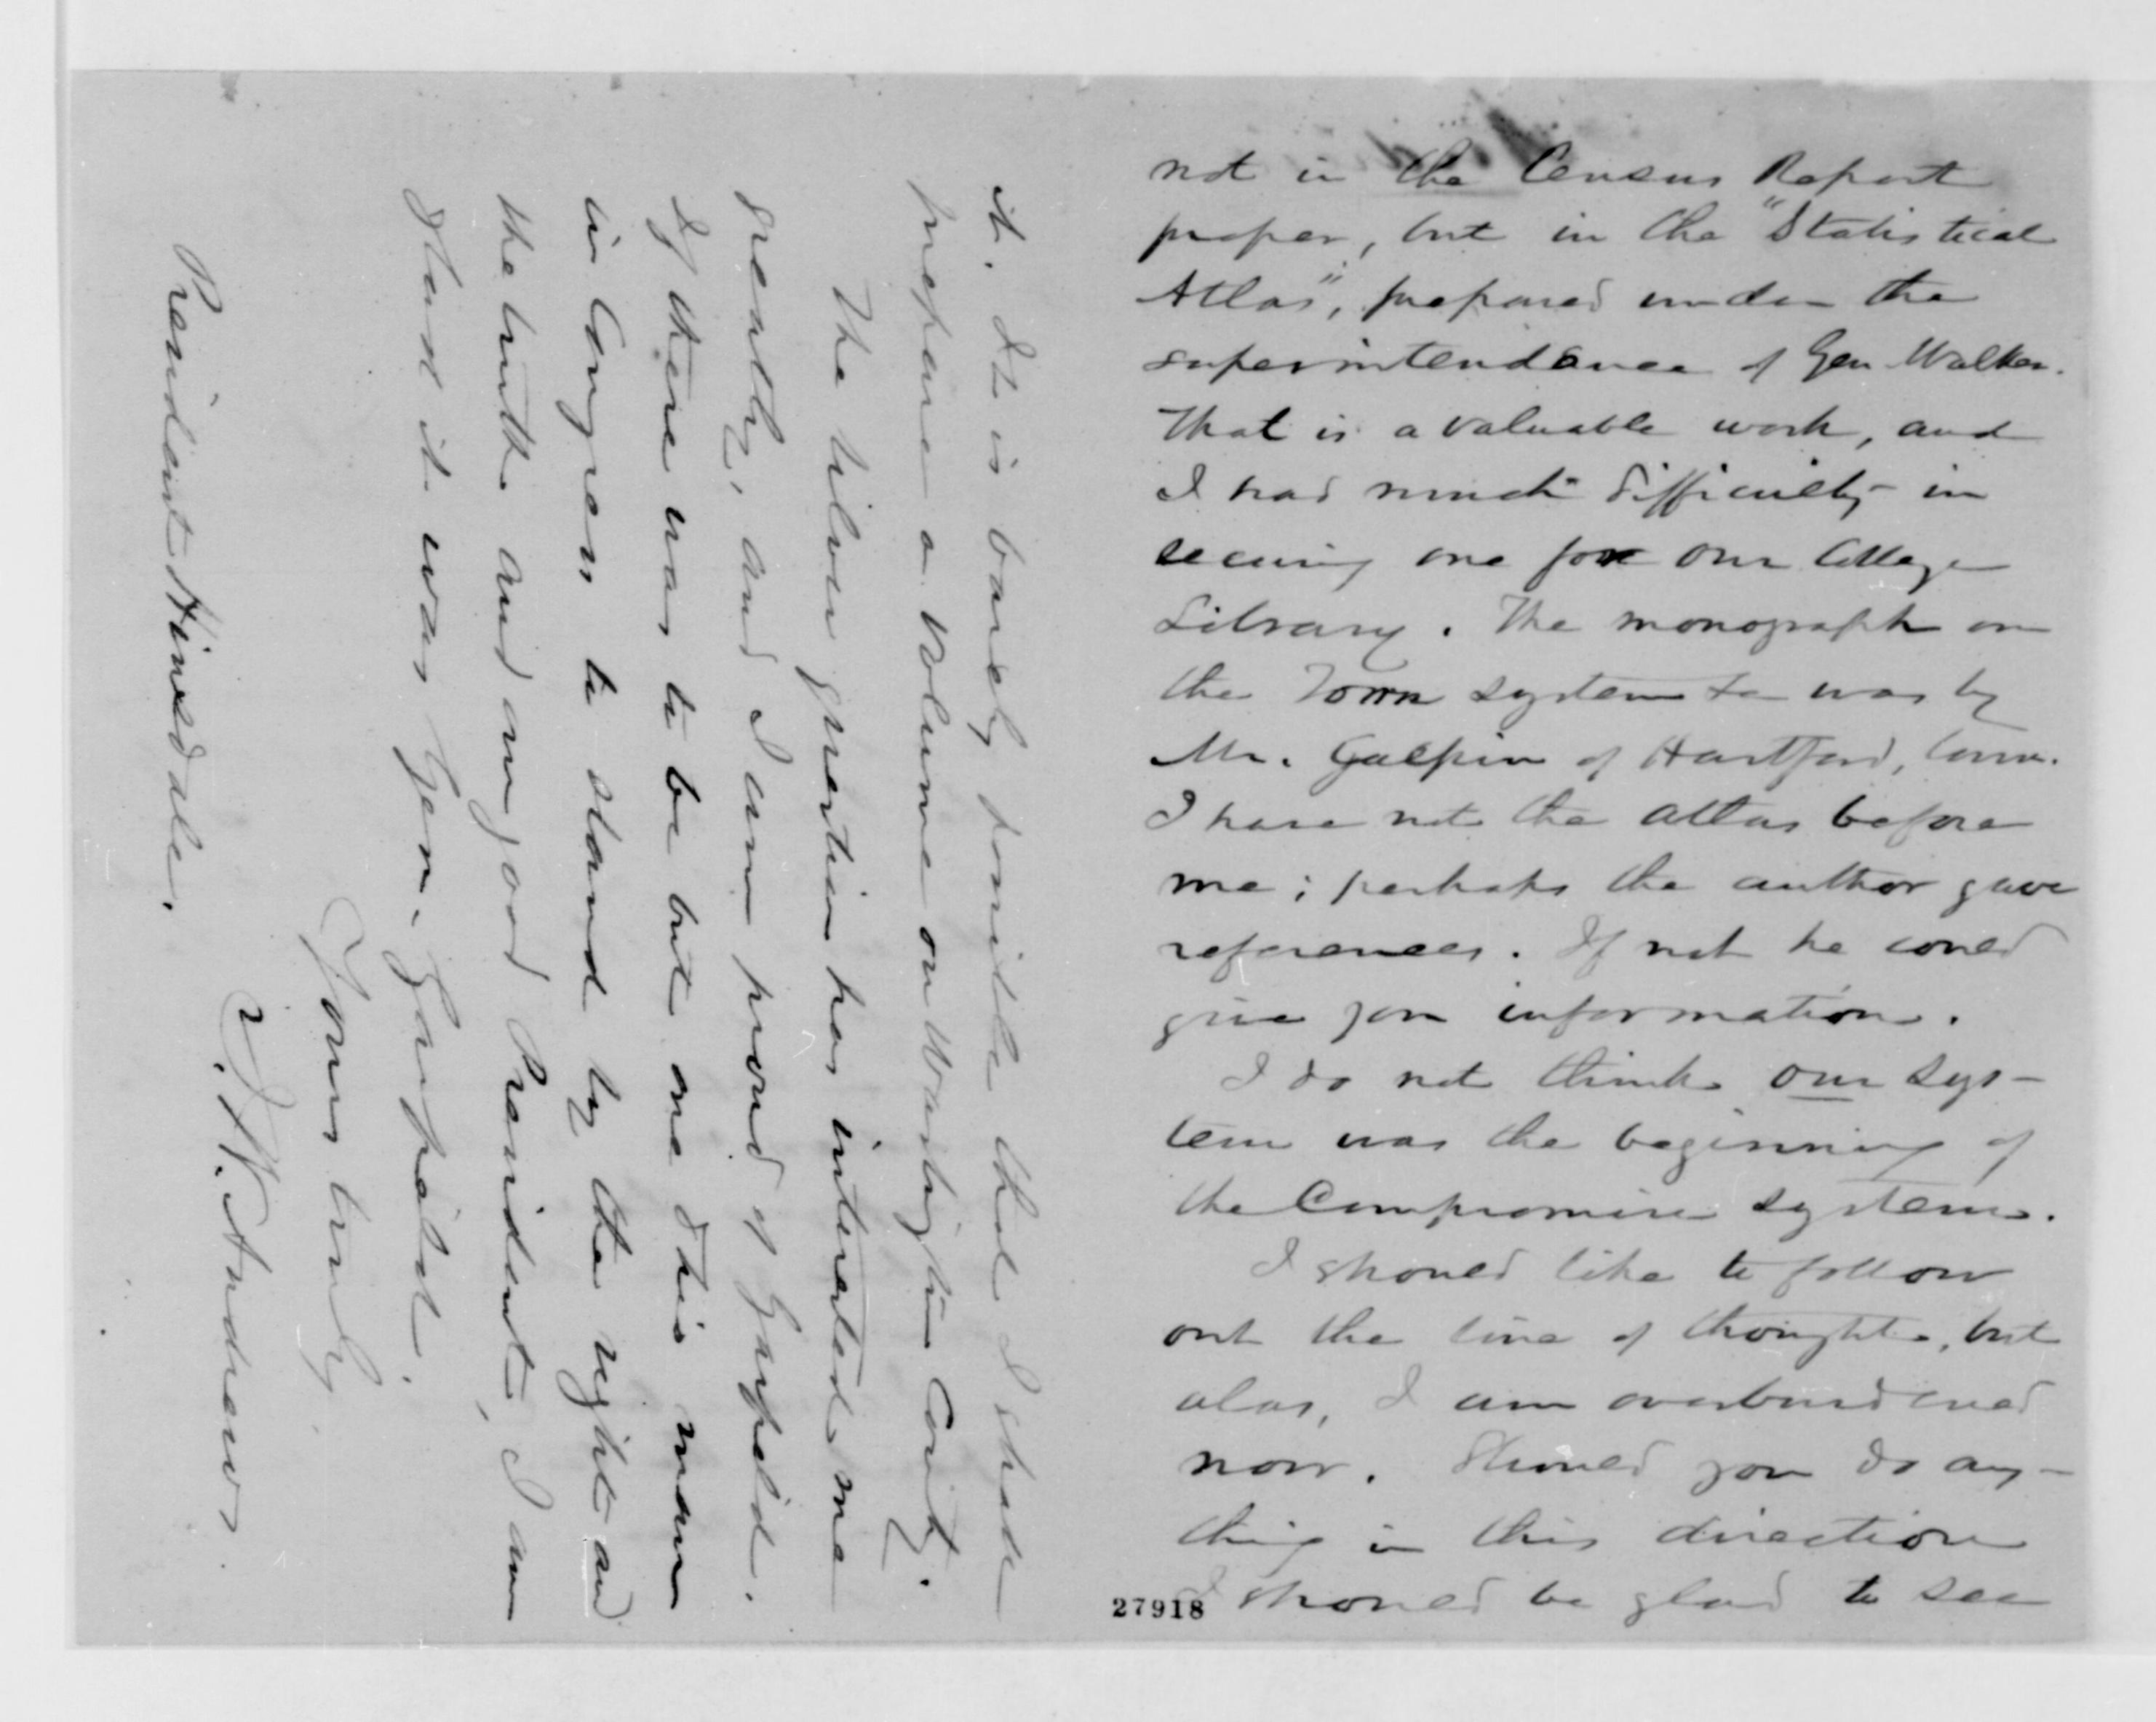 not in the Census Report
proper, but in the "Statistical
Atlas", prepared under the
superintendance of Gen Walker.
That is a valuable work, and
I had much difficulty in
securing one for our College
Library. The monograph on
the Town system &c was by
Mr. Galpin of Hartford, Conn.
I have not the atlas before
me; perhaps the author gave
references. If not he could
give you information.
I do not think our sys-
tem was the beginning of
the Compromise system.
I should like to follow
out the line of thought, but
alas, I am overburdened
now. Should you do any-
thing in this direction
I should be glad to see
27918
it. It is barely possible that I shall
prepare a volume on Washington County.
The silver question has interested me
greatly, and I am proud of Garfield.
If there was to be but one Ohio man
in Congress to stand by the right and
the truth and our good President, I am
glad it was Gen. Garfield.
Yours truly
I. W. Andrews.
President Hinsdale.